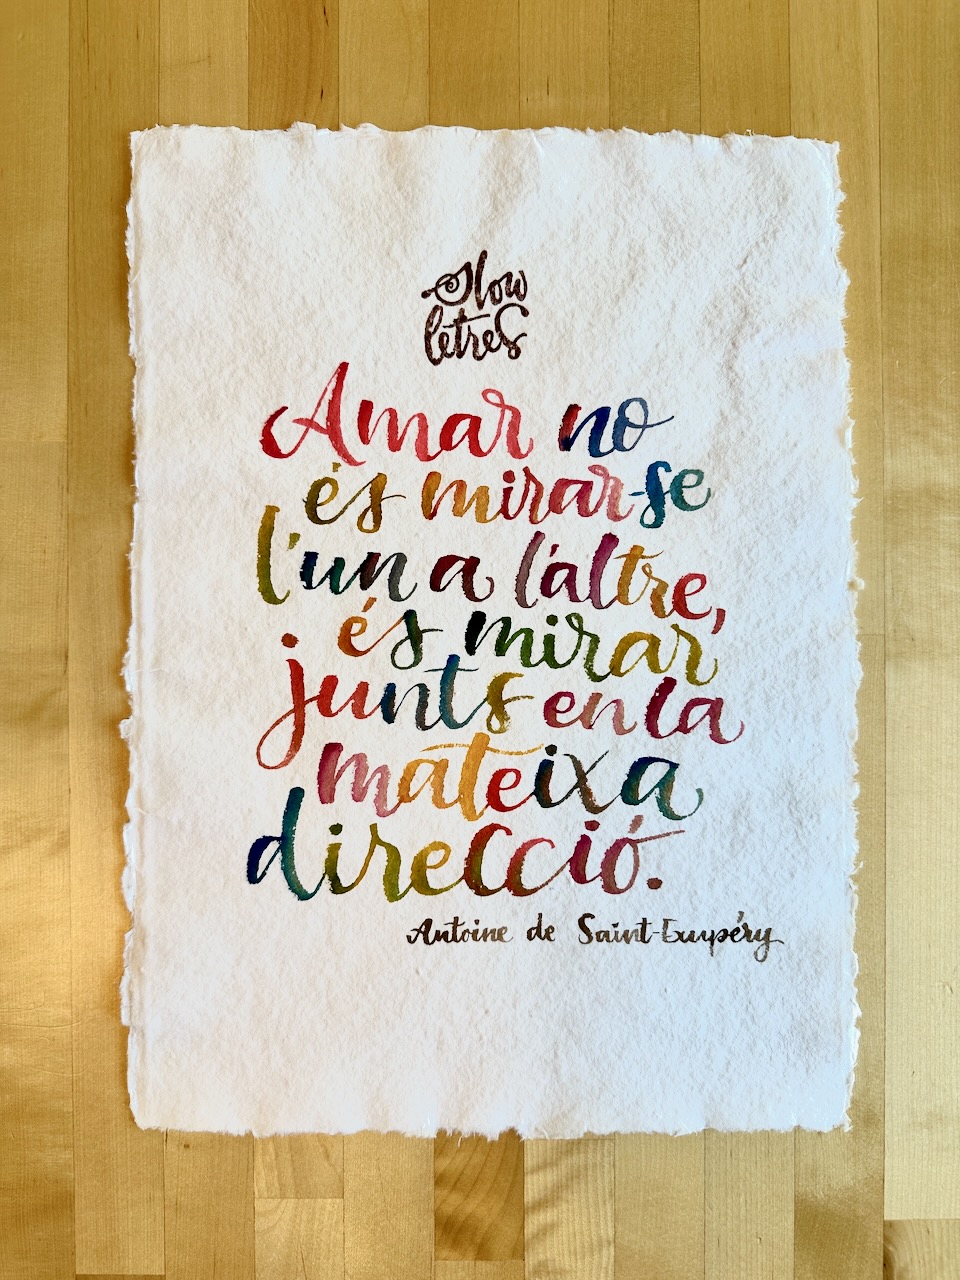 Slow
letres
Amar no
és mirar-se
l'un a l'altre,
és mirar
junts en la
mateixa
direcció.
Antoine de Saint-Exupéry